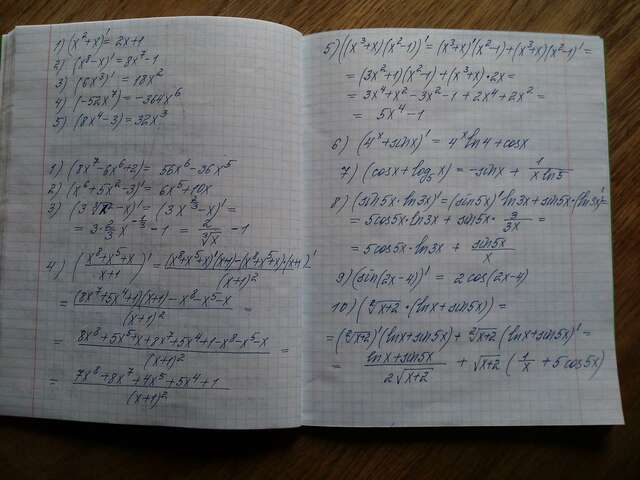 1) (x²+x)' = 2x+1
2) (x⁸-x)' = 8x⁷-1
3) (6x³)' = 18x²
4) (-52x⁷) = -364x⁶
5) (8x⁴-3) = 32x³
1) (8x⁷-6x⁶+2) = 56x⁶-36x⁵
2) (x⁶+5x²-3)' = 6x⁵+10x
3) (3∛x²-x)' = (3x^(2/3)-x)' =
= 3·2/3 x^(-1/3) - 1 = 2/∛x - 1
4) ((x⁸+x⁵+x)/(x+1))' = ((x⁸+x⁵+x)'(x+1)-(x⁸+x⁵+x)·(x+1)')/(x+1)²
= ((8x⁷+5x⁴+1)(x+1)-x⁸-x⁵-x)/(x+1)² =
= (8x⁸+5x⁵+x+8x⁷+5x⁴+1-x⁸-x⁵-x)/(x+1)² =
= (7x⁸+8x⁷+4x⁵+5x⁴+1)/(x+1)²
5) ((x³+x)(x²-1))' = (x³+x)'(x²-1)+(x³+x)(x²-1)' =
= (3x²+1)(x²-1)+(x³+x)·2x =
= 3x⁴+x²-3x²-1+2x⁴+2x² =
= 5x⁴-1
6) (4ˣ+sinx)' = 4ˣln4+cosx
7) (cosx+log₅x) = -sinx + 1/(x ln5)
8) (sin5x·ln3x)' = (sin5x)'ln3x+sin5x·(ln3x)' =
= 5cos5x·ln3x + sin5x·3/3x =
= 5cos5x·ln3x + sin5x/x
9) (sin(2x-4))' = 2cos(2x-4)
10) (²√(x+2)·(lnx+sin5x)) =
= (²√(x+2))'(lnx+sin5x) + ²√(x+2)(lnx+sin5x)' =
= (lnx+sin5x)/(2√(x+2)) + √(x+2)(1/x+5cos5x)